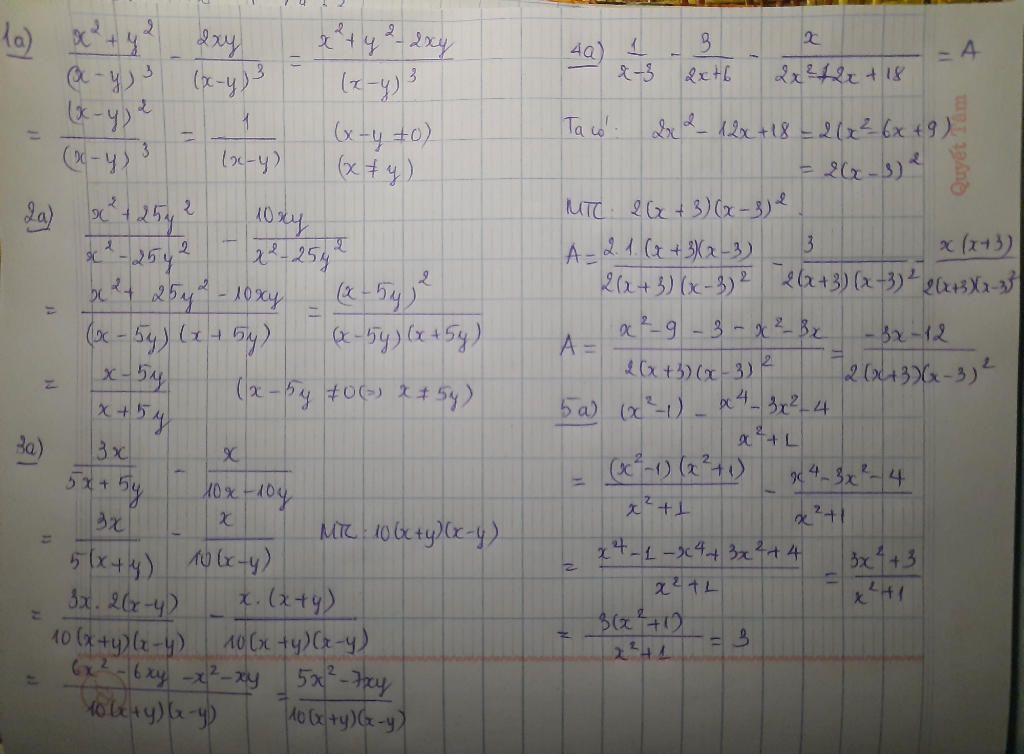 1a) (x² + y²)/(x-y)³ - 2xy/(x-y)³ = (x² + y² - 2xy)/(x-y)³
= (x-y)²/(x-y)³ = 1/(x-y) (x-y ≠ 0)
(x ≠ y)
2a) (x² + 25y²)/(x² - 25y²) - 10xy/(x² - 25y²)
= (x² + 25y² - 10xy)/((x-5y)(x+5y)) = (x-5y)²/((x-5y)(x+5y))
= (x-5y)/(x+5y) (x-5y ≠ 0 (=) x ≠ 5y)
3a) 3x/(5x+5y) - x/(10x-10y)
= 3x/(5(x+y)) - x/(10(x-y)) MTC: 10(x+y)(x-y)
= (3x.2(x-y))/(10(x+y)(x-y)) - (x.(x+y))/(10(x+y)(x-y))
= (6x² - 6xy - x² - xy)/(10(x+y)(x-y)) = (5x² - 7xy)/(10(x+y)(x-y))
4a) 1/(x-3) - 3/(2x+6) - x/(2x²-12x+18) = A
Ta có: 2x² - 12x + 18 = 2(x² - 6x + 9)
= 2(x-3)²
MTC: 2(x+3)(x-3)².
A = (2.1.(x+3)(x-3))/(2(x+3)(x-3)²) - 3/(2(x+3)(x-3)²) - (x(x+3))/(2(x+3)(x-3)²)
A = (x² - 9 - 3 - x² - 3x)/(2(x+3)(x-3)²) = (-3x-12)/(2(x+3)(x-3)²)
5a) (x²-1) - (x⁴ - 3x² - 4)/(x²+1)
= ((x²-1)(x²+1))/(x²+1) - (x⁴ - 3x² - 4)/(x²+1)
= (x⁴ - 1 - x⁴ + 3x² + 4)/(x²+1) = (3x²+3)/(x²+1)
= (3(x²+1))/(x²+1) = 3
Quyết Tâm